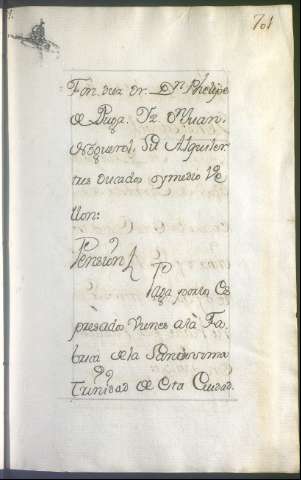 701
Fon. duz Dr. Dn. Phelipe
de Puga. Yz Juan.
Noguerol, Su Alquiler
tres ducados y medio Ve
llon:
Pension
Paga por los Ex
presados Vienes a la Fa
brica de la Santissima
Trinidad de Esta Ciudad.